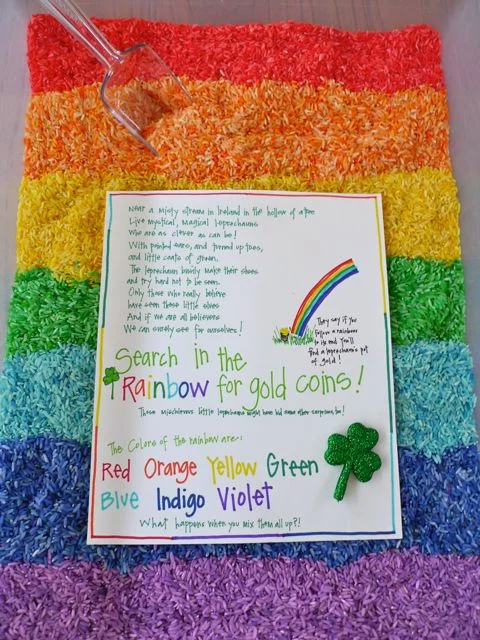 Near a misty stream in Ireland in the hollow of a tree
Live mystical, magical leprechauns
Who are as clever as can be!
With pointed ears, and turned up toes,
and little coats of green.
The leprechaun busily make their shoes
and try hard not to be seen.
Only those who really believe
have seen these little elves
And if we are all believers
We can surely see for ourselves!
They say if you
follow a rainbow
to its end you'll
find a leprechaun's pot
of gold!
Search in the
Rainbow for gold coins!
These mischievous little leprechauns might have hid some other surprises, too!
The Colors of the rainbow are...
Red Orange Yellow Green
Blue Indigo Violet
What happens when you mix them all up?!